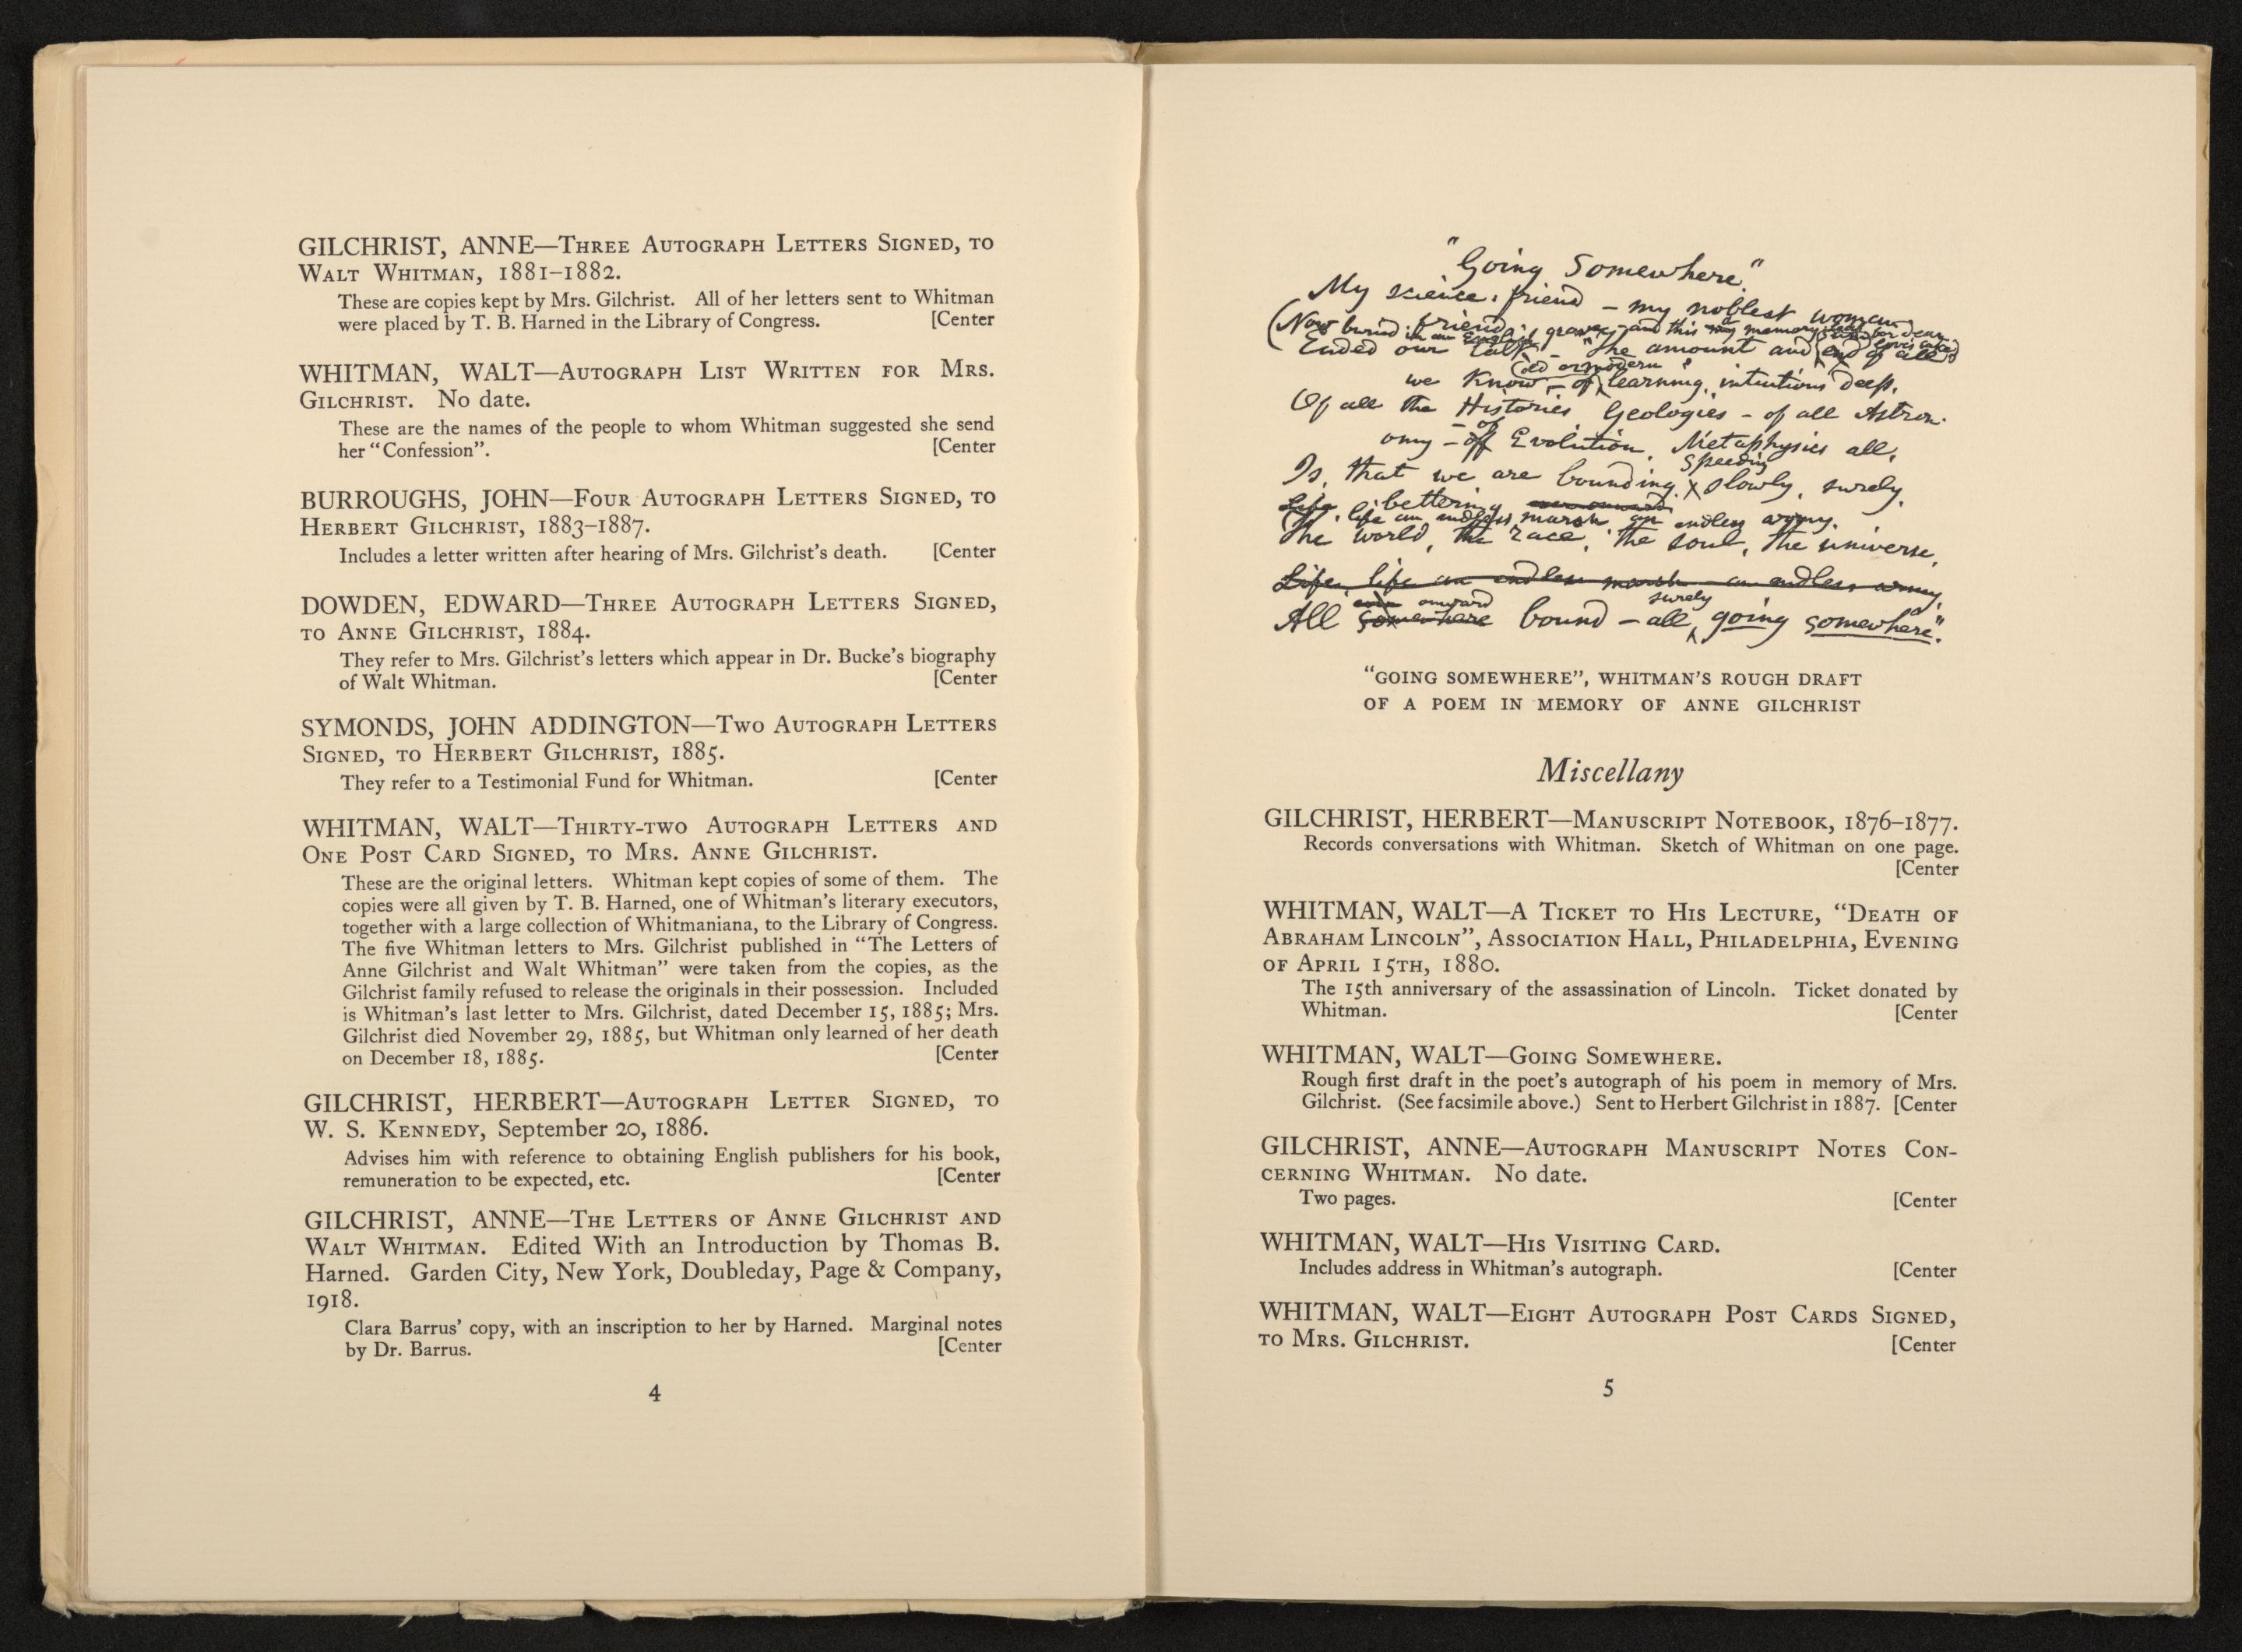 GILCHRIST, ANNE—THREE AUTOGRAPH LETTERS SIGNED, TO
WALT WHITMAN, 1881–1882.
These are copies kept by Mrs. Gilchrist. All of her letters sent to Whitman
were placed by T. B. Harned in the Library of Congress. [Center
WHITMAN, WALT—AUTOGRAPH LIST WRITTEN FOR MRS.
GILCHRIST. No date.
These are the names of the people to whom Whitman suggested she send
her "Confession". [Center
BURROUGHS, JOHN—FOUR AUTOGRAPH LETTERS SIGNED, TO
HERBERT GILCHRIST, 1883–1887.
Includes a letter written after hearing of Mrs. Gilchrist's death. [Center
DOWDEN, EDWARD—THREE AUTOGRAPH LETTERS SIGNED,
TO ANNE GILCHRIST, 1884.
They refer to Mrs. Gilchrist's letters which appear in Dr. Bucke's biography
of Walt Whitman. [Center
SYMONDS, JOHN ADDINGTON—TWO AUTOGRAPH LETTERS
SIGNED, TO HERBERT GILCHRIST, 1885.
They refer to a Testimonial Fund for Whitman. [Center
WHITMAN, WALT—THIRTY-TWO AUTOGRAPH LETTERS AND
ONE POST CARD SIGNED, TO MRS. ANNE GILCHRIST.
These are the original letters. Whitman kept copies of some of them. The
copies were all given by T. B. Harned, one of Whitman's literary executors,
together with a large collection of Whitmaniana, to the Library of Congress.
The five Whitman letters to Mrs. Gilchrist published in "The Letters of
Anne Gilchrist and Walt Whitman" were taken from the copies, as the
Gilchrist family refused to release the originals in their possession. Included
is Whitman's last letter to Mrs. Gilchrist, dated December 15, 1885; Mrs.
Gilchrist died November 29, 1885, but Whitman only learned of her death
on December 18, 1885. [Center
GILCHRIST, HERBERT—AUTOGRAPH LETTER SIGNED, TO
W. S. KENNEDY, September 20, 1886.
Advises him with reference to obtaining English publishers for his book,
remuneration to be expected, etc. [Center
GILCHRIST, ANNE—THE LETTERS OF ANNE GILCHRIST AND
WALT WHITMAN. Edited With an Introduction by Thomas B.
Harned. Garden City, New York, Doubleday, Page & Company,
1918.
Clara Barrus' copy, with an inscription to her by Harned. Marginal notes
by Dr. Barrus. [Center
4
"Going Somewhere"
My science-friend – my noblest woman
friend
(Now buried in an English grave, – and this memory
Ended our talk – "The amount and end of all
old or modern
we know – of learning, intuitions deep,
Of all the Histories Geologies – of all Astron-
– of
omy – of Evolution, Metaphysics all,
speeding
Is, that we are bounding, slowly, surely
bettering
Life, life an endless march an endless army.
The world, the race, the soul, the universe,
Life, life an endless march – an endless army,
onward surely
All somewhere bound – all going somewhere".
"GOING SOMEWHERE", WHITMAN'S ROUGH DRAFT
OF A POEM IN MEMORY OF ANNE GILCHRIST
Miscellany
GILCHRIST, HERBERT—MANUSCRIPT NOTEBOOK, 1876–1877.
Records conversations with Whitman. Sketch of Whitman on one page.
[Center
WHITMAN, WALT—A TICKET TO HIS LECTURE, "DEATH OF
ABRAHAM LINCOLN", ASSOCIATION HALL, PHILADELPHIA, EVENING
OF APRIL 15TH, 1880.
The 15th anniversary of the assassination of Lincoln. Ticket donated by
Whitman. [Center
WHITMAN, WALT—GOING SOMEWHERE.
Rough first draft in the poet's autograph of his poem in memory of Mrs.
Gilchrist. (See facsimile above.) Sent to Herbert Gilchrist in 1887. [Center
GILCHRIST, ANNE—AUTOGRAPH MANUSCRIPT NOTES CON-
CERNING WHITMAN. No date.
Two pages. [Center
WHITMAN, WALT—HIS VISITING CARD.
Includes address in Whitman's autograph. [Center
WHITMAN, WALT—EIGHT AUTOGRAPH POST CARDS SIGNED,
TO MRS. GILCHRIST. [Center
5